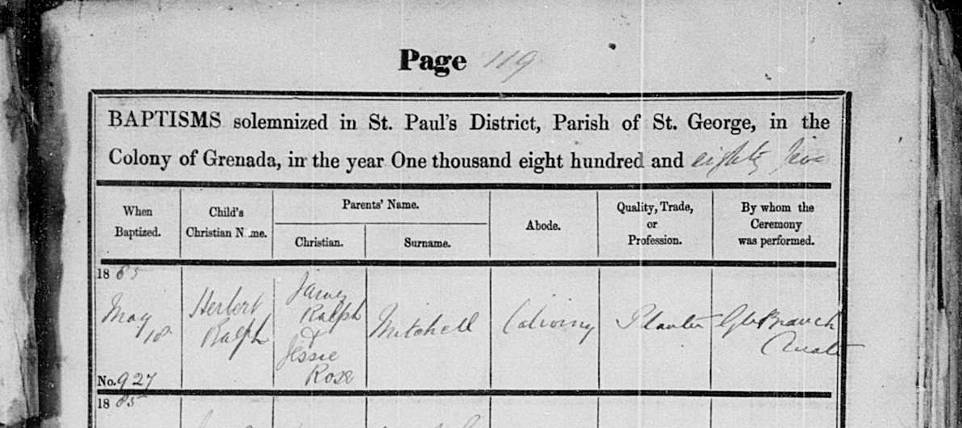 Page 119
BAPTISMS solemnized in St. Paul's District, Parish of St. George, in the
Colony of Grenada, in the year One thousand eight hundred and eighty five
When
Baptized.
Child's
Christian N me.
Parents' Name.
Christian.
Surname.
Abode.
Quality, Trade,
or
Profession.
By whom the
Ceremony
was performed.
1885
May
18
No. 927
Herbert
Ralph
James
Ralph
&
Jessie
Rose
Mitchell
Calivigny
Planter
Branch
Curate
1885